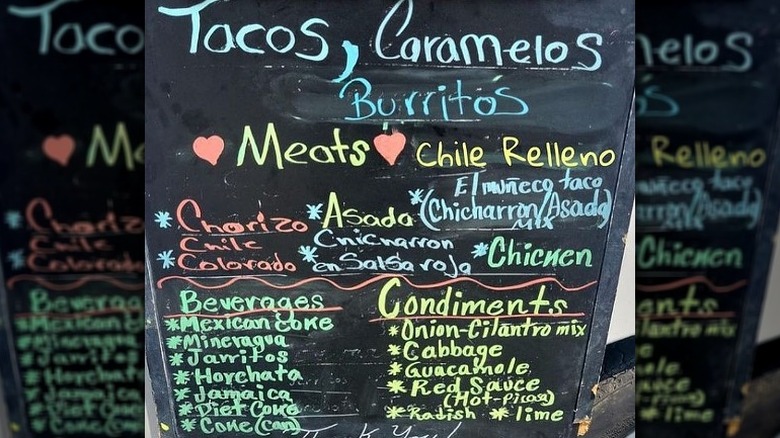 Tacos, Caramelos
Burritos
Meats Chile Relleno
El muñeco taco
*Chorizo *Asada *(Chicharron/Asada)
Mix
Chile Chicharron
*Colorado *en Salsa roja *Chicken
Beverages Condiments
*Mexican Coke *Onion-Cilantro mix
*Mineragua *Cabbage
*Jarritos *Guacamole
*Horchata *Red Sauce
*Jamaica (Hot-picosa)
*Diet Coke *Radish *lime
*Coke (can)